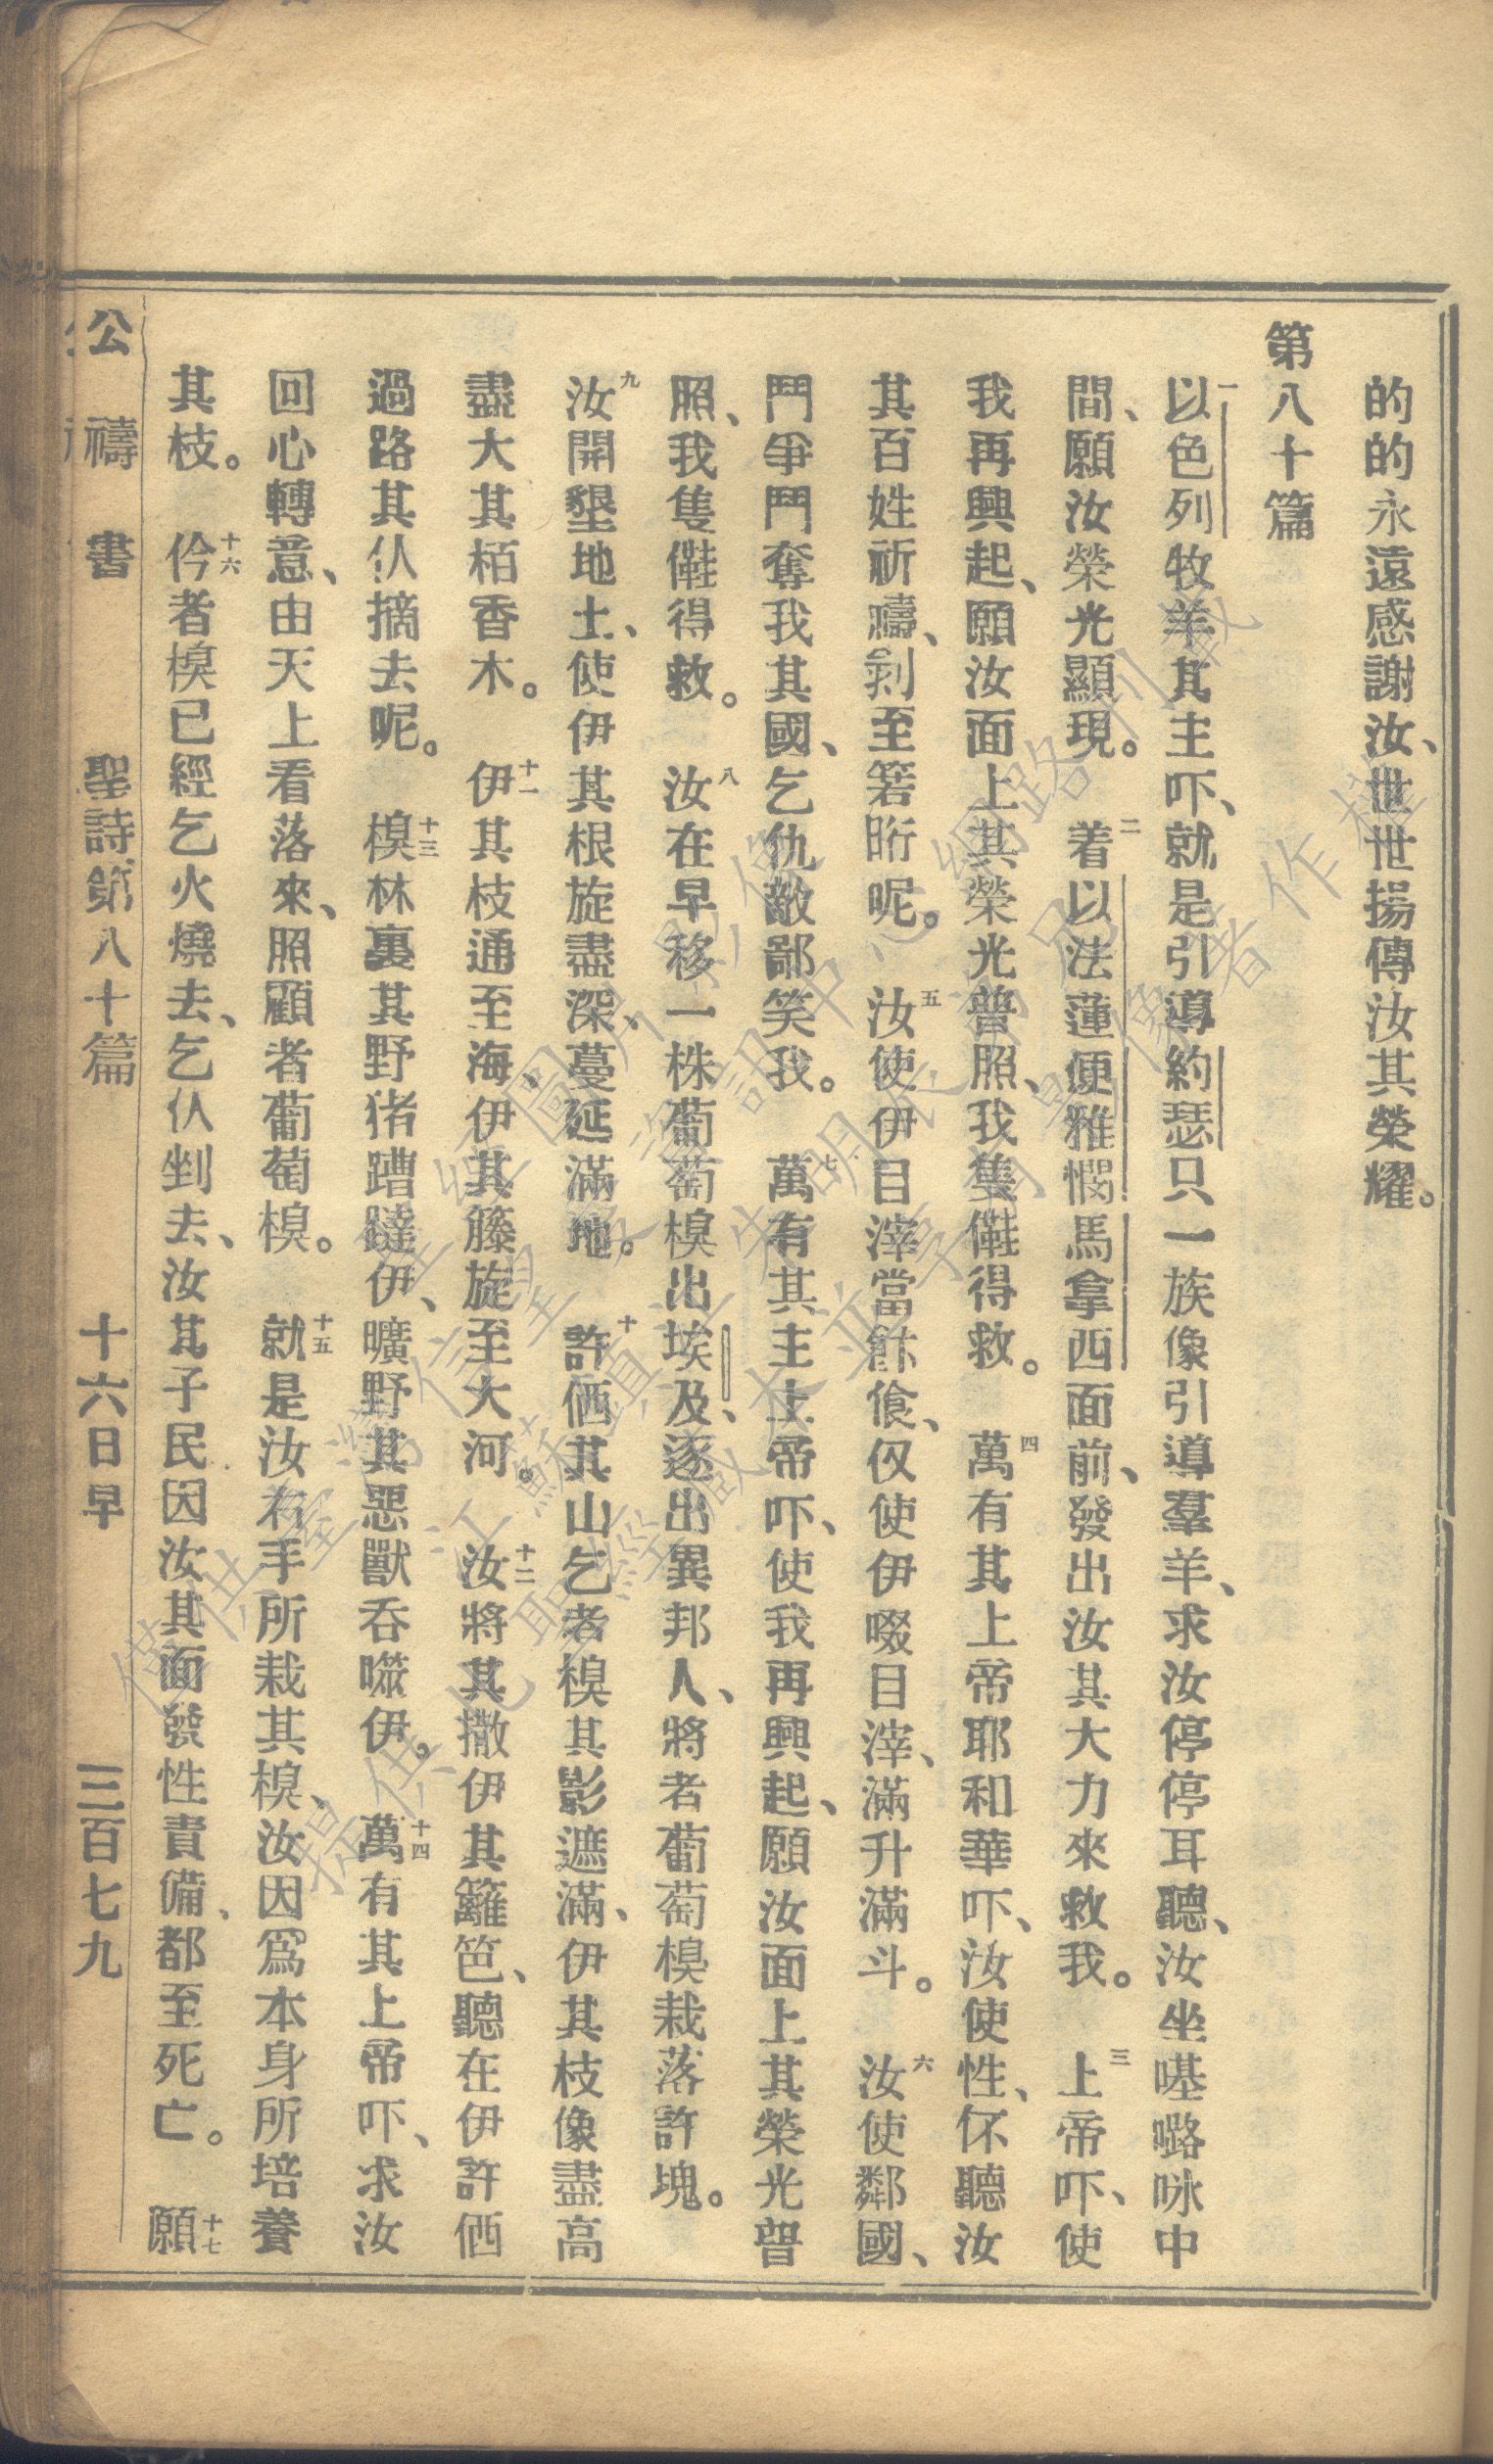 的的永遠感謝汝、世世揚傳汝其榮耀。
第八十篇
一以色列牧羊其主吓、就是引導約瑟只一族像引導羣羊、求汝停停耳聽、汝坐𡀔嚧咏中
間、願汝榮光顯現。 二着以法蓮便雅憫馬拿西面前、發出汝其大力來救我。 三上帝吓、使
我再興起、願汝面上其榮光普照、我隻㒸得救。 四萬有其上帝耶和華吓、汝使性、伓聽汝
其百姓祈禱、到至箬䀪呢。 五汝使伊目滓當飰飧、仅使伊啜目滓、滿升滿斗。 六汝使鄰國、
鬥爭鬥奪我其國、乞仇敵鄙笑我。 七萬有其主上帝吓、使我再興起、願汝面上其榮光普
照、我隻得救。 八汝在早移一株葡萄樖出埃及、逐出異邦人、將者葡萄樖栽落許塊。
九汝開墾地土、使伊其根旋盡深、蔓延滿地。 十許俩其山乞者樖其影遮滿、伊其枝像盡高
盡大其栢香木。 十一伊其枝通至海、伊其籐旋至大河。 十二汝將其撒伊其籬笆、聽在伊許
過路其仈摘去呢。 十三樖林裏其野猪蹧躂伊、曠野其惡獸吞噬伊。 十四萬有其上帝吓、求汝
回心轉意、由天上看落來、照顧者葡萄樖。 十五就是汝右手所栽其樖、汝因爲本身所培養
其枝。 十六仱者樖已經乞火燒去、乞仈剉去、汝其子民因汝其面發性責備、都至死亡。 十七願
公禱書 聖詩第八十篇 十六日早 三百七九